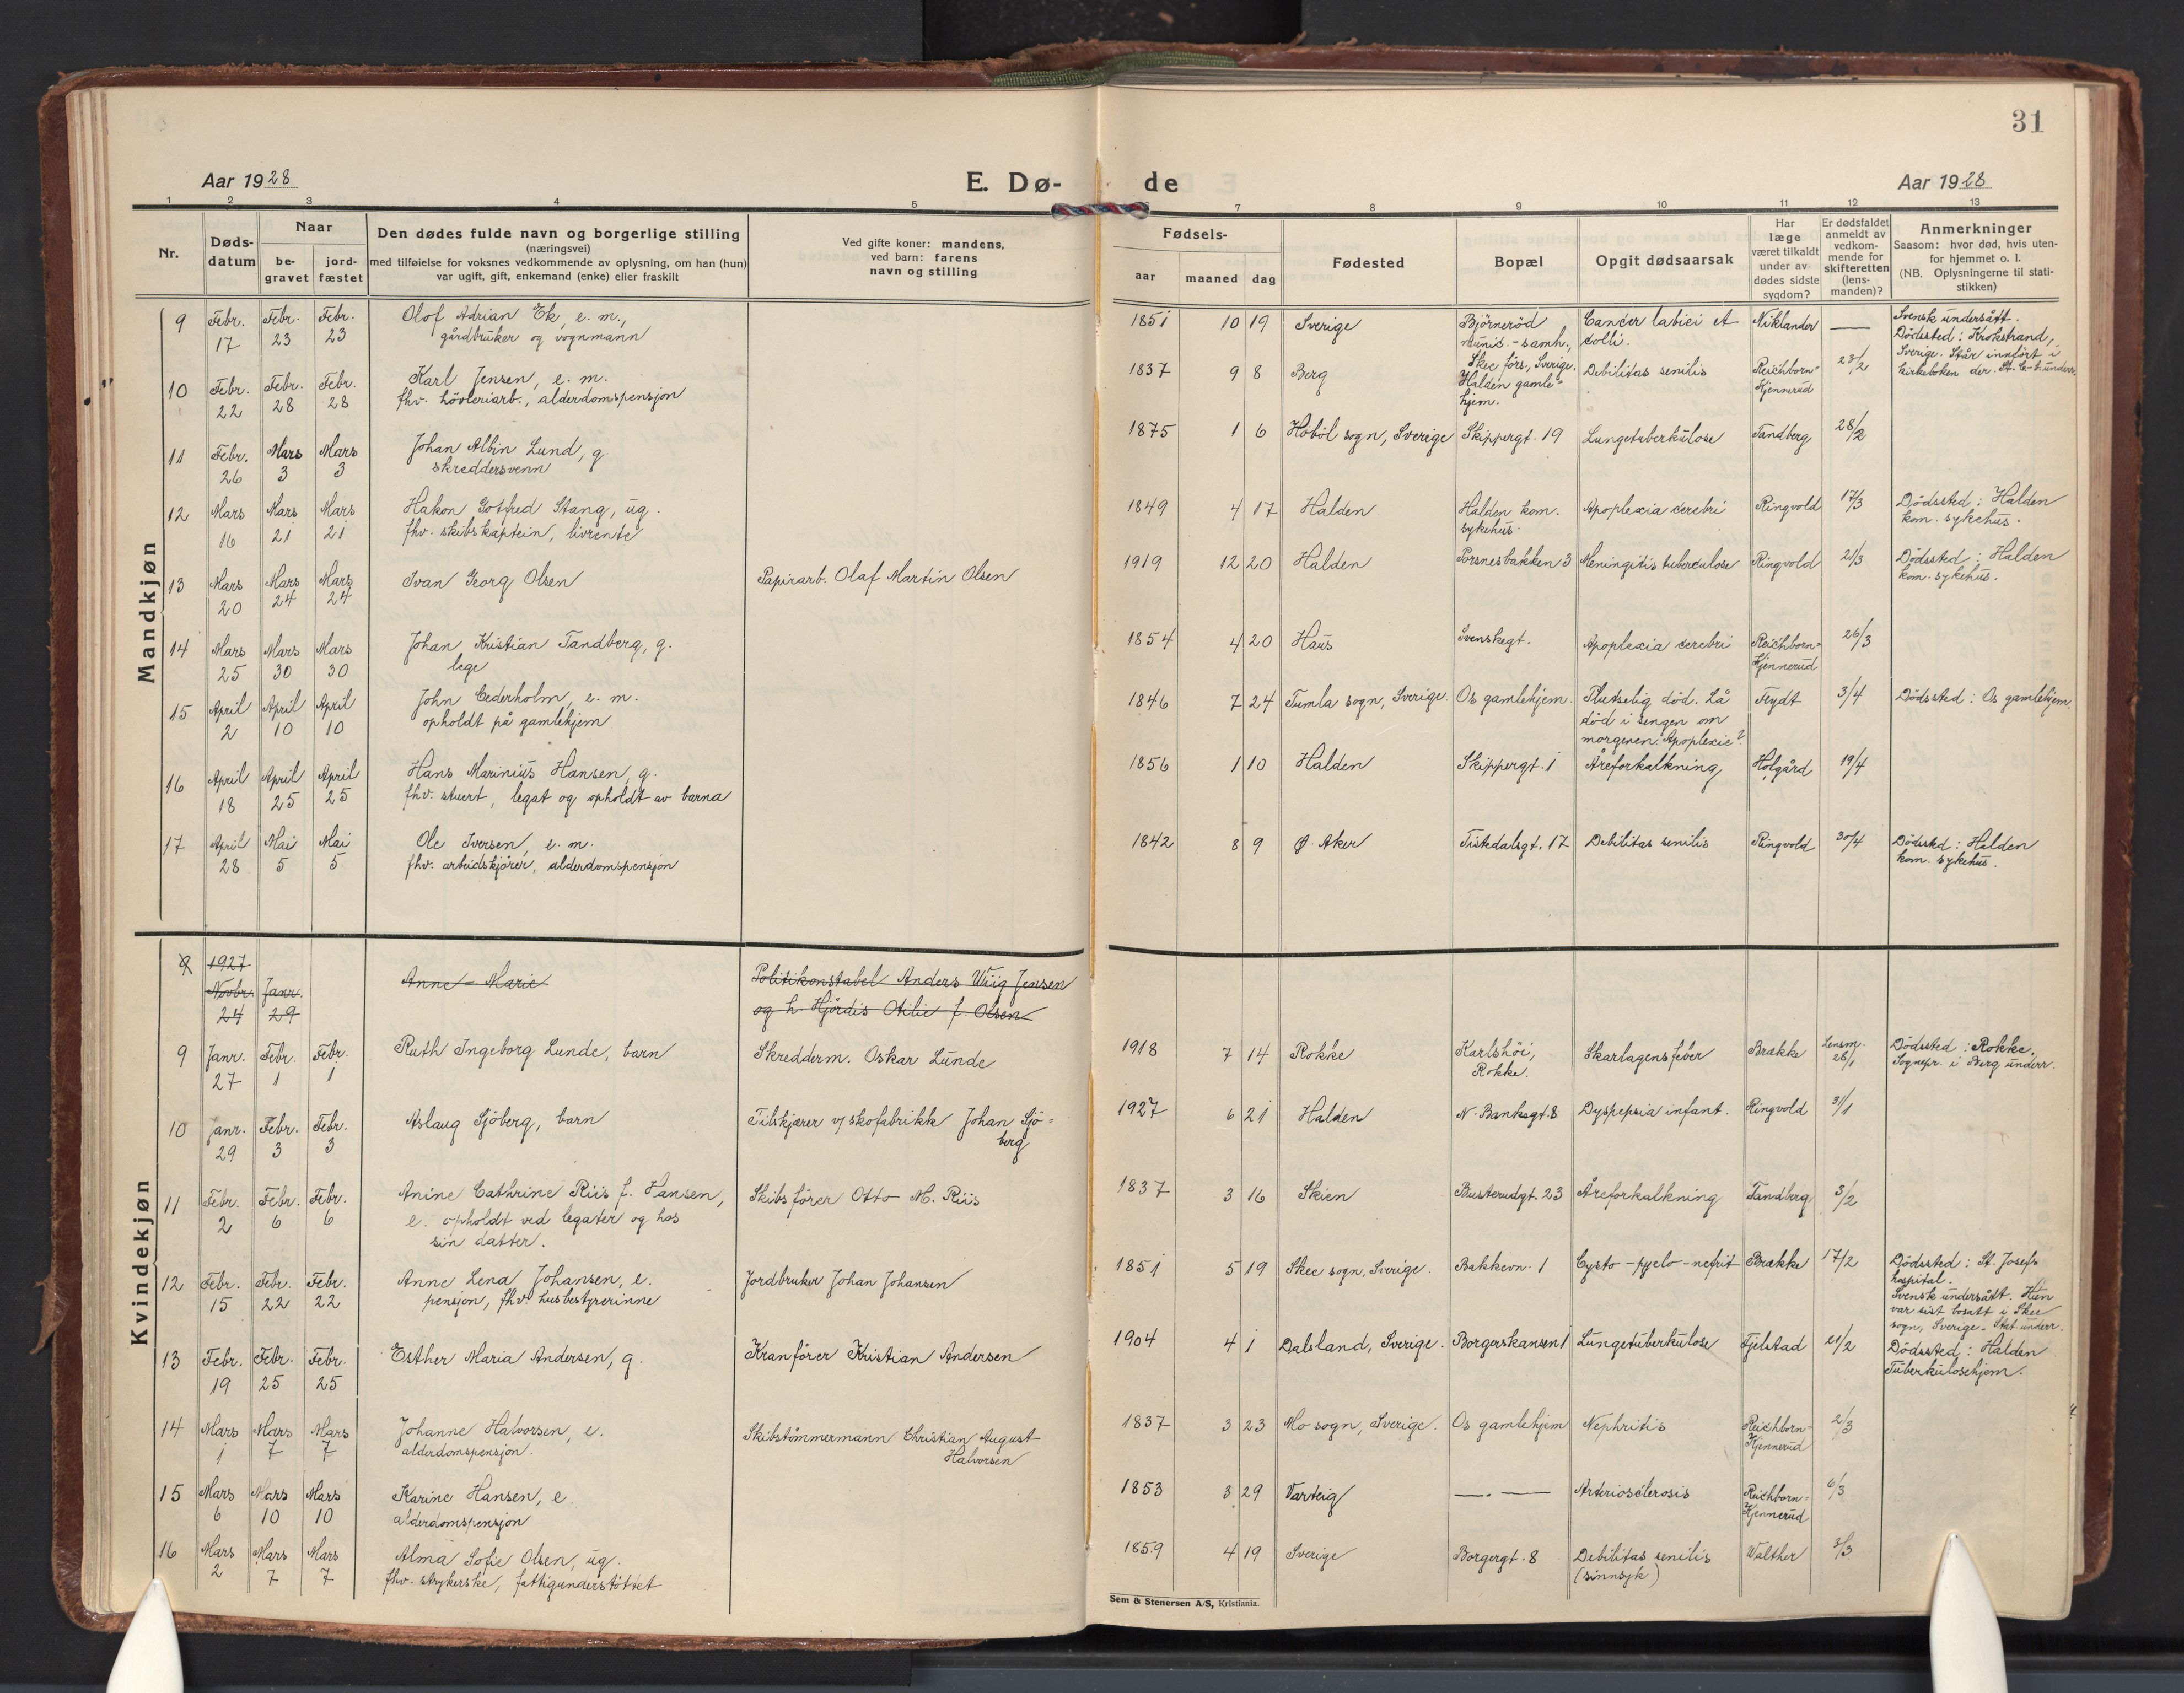 31
Aar 1928
E. Dø- de
Aar 1928
1 2 3 4 5 7 8 9 10 11 12 13
Nr.
Døds-datum
Naar
be-gravet
jord-fæstet
Den dødes fulde navn og borgerlige stilling
(næringsvei)
med tilføielse for voksnes vedkommende av oplysning, om han (hun)
var ugift, gift, enkemand (enke) eller fraskilt
Ved gifte koner: mandens,
ved barn: farens
navn og stilling
Fødsels-
aar maaned dag
Fødested
Bopæl
Opgit dødsaarsak
Har
læge
været tilkaldt
under av-
dødes sidste
sygdom?
Er dødsfaldet
anmeldt av
vedkom-
mende for
skifteretten
(lens-
manden)?
Anmerkninger
Saasom: hvor død, hvis uten-
for hjemmet o. l.
(NB. Oplysningerne til stati-
stikken)
Mandkjøn
9 Febr. 17 Febr. 23 Febr. 23 Olof Adrian Ek, e. m.,
gårdbruker og vognmann
1851 10 19 Sverige Björneröd
munic.-samh.,
Skee förs., Sverige. Cancer labii et
colli. Niklander — Svensk undersått.
Dödssted: Krokstrand,
Sverige. Står innfört i
kirkeboken der.
10 Febr. 22 Febr. 28 Febr. 28 Karl Jensen, e. m.
fhv. hövleriarb., alderdomspensjon
1837 9 8 Berg Halden gamle-
hjem. Debilitas senilis Reichborn-
Kjennerud 23/2
11 Febr. 26 Mars 3 Mars 3 Johan Albin Lund, g.
skreddersvenn
1875 1 6 Höböl sogn, Sverige Skippergt. 19 Lungetuberkulose Tandberg 28/2
12 Mars 16 Mars 21 Mars 21 Hakon Gotfred Stang, ug.
fhv. skibskaptein, livrente
1849 4 17 Halden Halden kom.
sykehus. Apoplexia cerebri Ringvold 17/3 Dödssted: Halden
kom. sykehus.
13 Mars 20 Mars 24 Mars 24 Ivan Georg Olsen Papirarb. Olaf Martin Olsen
1919 12 20 Halden Porsnesbakken 3 Meningitis tuberculose Ringvold 21/3 Dödssted: Halden
kom. sykehus.
14 Mars 25 Mars 30 Mars 30 Johan Kristian Tandberg, g.
lege
1854 4 20 Haus Svenskegt. Apoplexia cerebri Reichborn-
Kjennerud 26/3
15 April 2 April 10 April 10 John Cederholm, e. m.
opholdt på gamlehjem
1846 7 24 Tumla sogn, Sverige. Os gamlehjem. Plutselig död. Lå
död i sengen om
morgenen. Apoplexie? Feydt 3/4 Dödssted: Os gamlehjem.
16 April 18 April 25 April 25 Hans Marinius Hansen, g.
fhv. stuert, legat og opholdt av barna
1856 1 10 Halden Skippergt. 1 Åreforkalkning Holgård 19/4
17 April 28 Mai 5 Mai 5 Ole Iversen, e. m.
fhv. arbeidskjörer, alderdomspensjon
1842 8 9 Ø. Aker Tistedalsgt. 17 Debilitas senilis Ringvold 30/4 Dödssted: Halden
kom. sykehus.
Kvindekjøn
9 1927 Novbr. 24 Janr. 29 Anne-Marie Politikonstabel Anders Wiig Jensen
og h. Hjördis Otilie f. Olsen
9 Janr. 27 Febr. 1 Febr. 1 Ruth Ingeborg Lunde, barn Skredderm. Oskar Lunde
1918 7 14 Rokke Karlshöi,
Rokke. Skarlagensfeber Brække Lensm.
28/1 Dödssted: Rokke.
Sognepr. i Berg underr.
10 Janr. 29 Febr. 3 Febr. 3 Aslaug Sjöberg, barn Tilskjærer v/ skofabrikk Johan Sjö-
berg
1927 6 21 Halden N. Banksgt. 8 Dyspepsia infant. Ringvold 31/1
11 Febr. 2 Febr. 6 Febr. 6 Anine Cathrine Riis f. Hansen,
e. opholdt ved legater og hos
sin datter. Skibsförer Otto M. Riis
1837 3 16 Skien Busterudgt. 23 Åreforkalkning Tandberg 3/2
12 Febr. 15 Febr. 22 Febr. 22 Anne Lena Johansen, e.
pensjon, fhv. husbestyrerinne Jordbruker Johan Johansen
1851 5 19 Skee sogn, Sverige. Bakkevn. 1 Cysto-pyelo-nefrit Brække 17/2 Dödssted: St. Josefs
hospital.
Svensk undersått. Hun
var sist bosatt i Skee
sogn, Sverige. Skt underr.
13 Febr. 19 Febr. 25 Febr. 25 Esther Maria Andersen, g. Kranförer Kristian Andersen
1904 4 1 Dalsland, Sverige. Borgerskansen 1 Lungetuberkulose Fjelstad 21/2 Dödssted: Halden
Tuberkulosehjem.
14 Mars 1 Mars 7 Mars 7 Johanne Halvorsen, e.
alderdomspensjon. Skibstömmermann Christian August
Halvorsen
1837 3 23 Mo sogn, Sverige. Os gamlehjem Nephritis Reichborn-
Kjennerud 2/3
15 Mars 6 Mars 10 Mars 10 Karine Hansen, e.
alderdomspensjon
1853 3 29 Varteig —.— Arteriosclerosis Reichborn-
Kjennerud 6/3
16 Mars 2 Mars 7 Mars 7 Alma Sofie Olsen, ug.
fhv. strykerske, fattigunderstöttet
1859 4 19 Sverige Borgergt. 8 Debilitas senilis
(sinnsyk) Walther 3/3
Sem & Stenersen A/S, Kristiania.